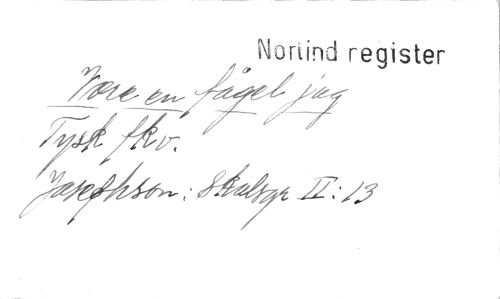 Norlind register
Vore en fågel jag
Tysk fkv.
Josephson: Skalbgr II: 13